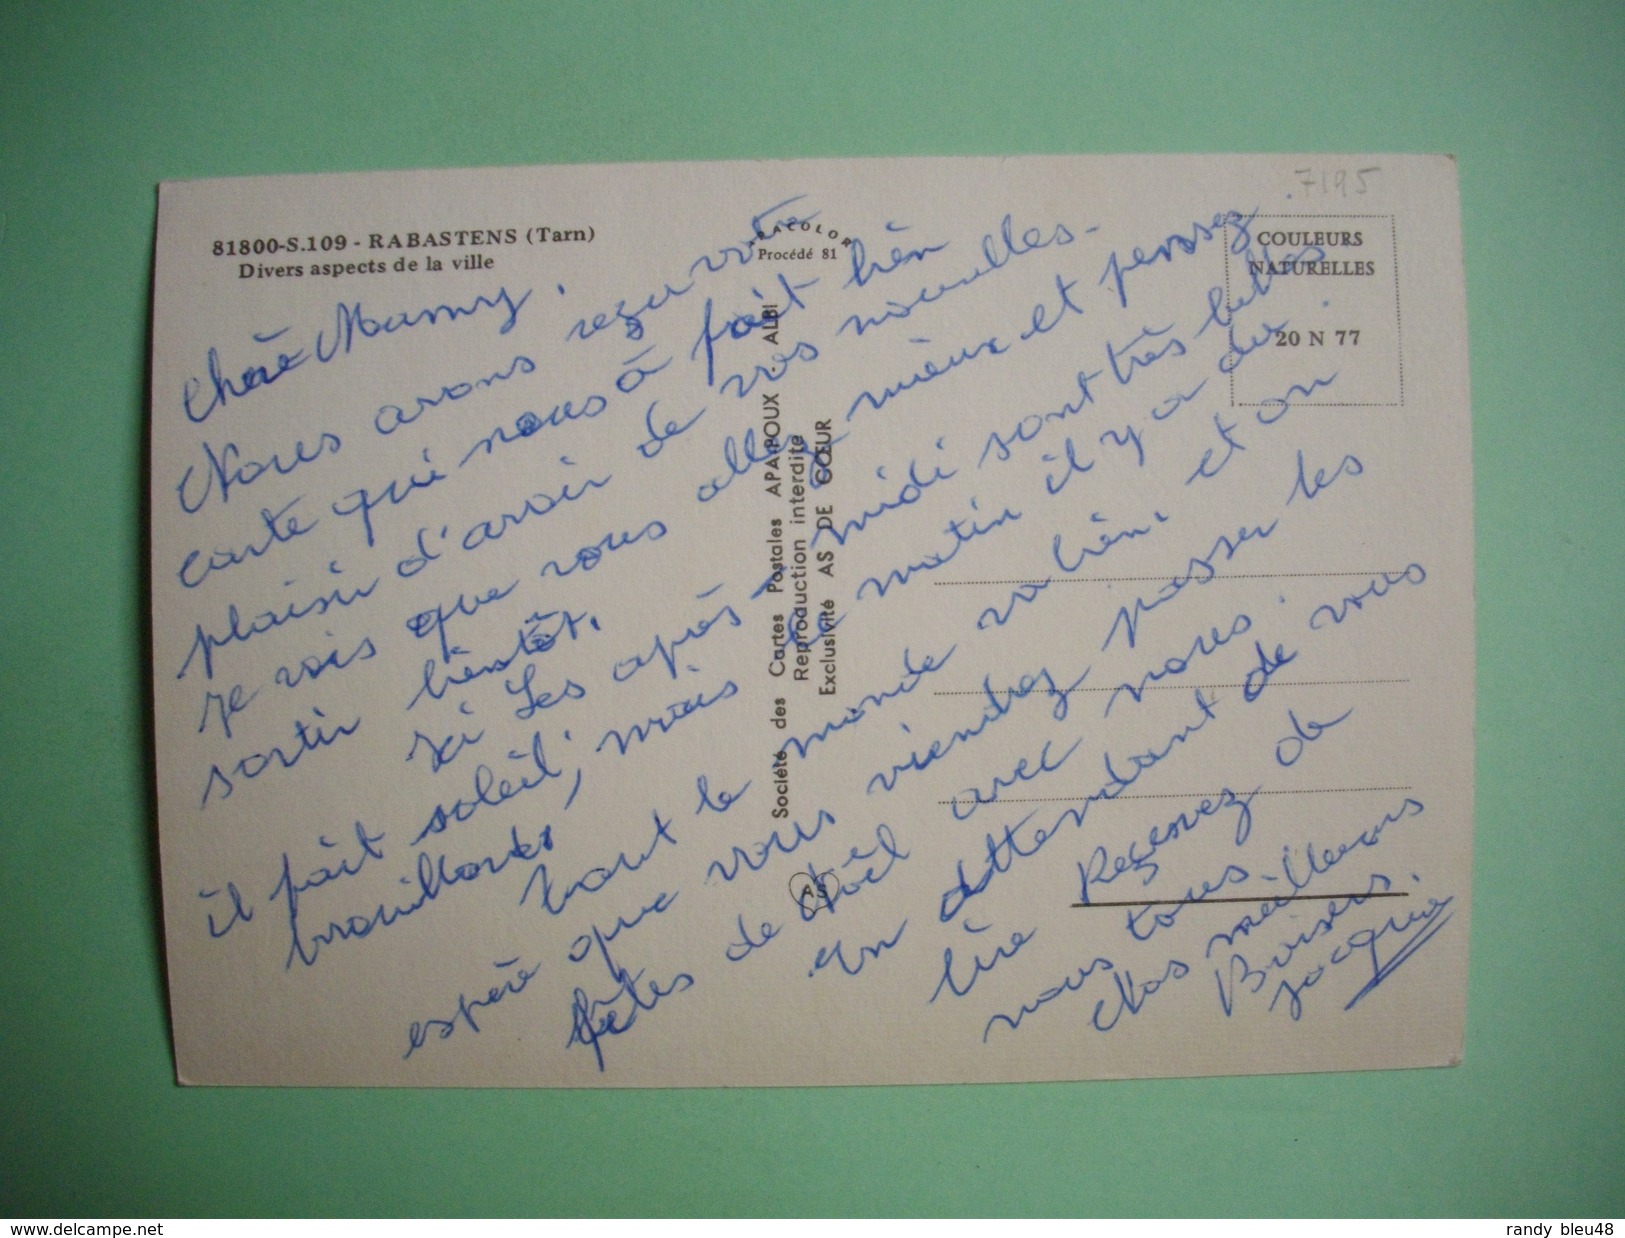 .7195
81800-S.109 - RABASTENS (Tarn)
Divers aspects de la ville
Procédé 81
COULEURS
NATURELLES
20 N 77
Société des Cartes Postales APA-POUX - ALBI
Reproduction interdite
Exclusivité AS DE CŒUR
AS
Chère Mamy,
Nous avons reçu votre
carte qui nous à fait bien
plaisir d'avoir de vos nouvelles.
je vois que vous allez mieux et penssez
sortir bientôt.
Ici Les après midi sont très belles
il fait soleil, mais le matin il y a du
brouillards,
tout le monde va bien. et on
espère que vous viendrez passer les
fêtes de Noël avec nous.
En attendant de vous
lire Recevez de
nous tous.
Nos meilleurs
Baisers.
Jacquie
www.delcampe.net
randy_bleu48